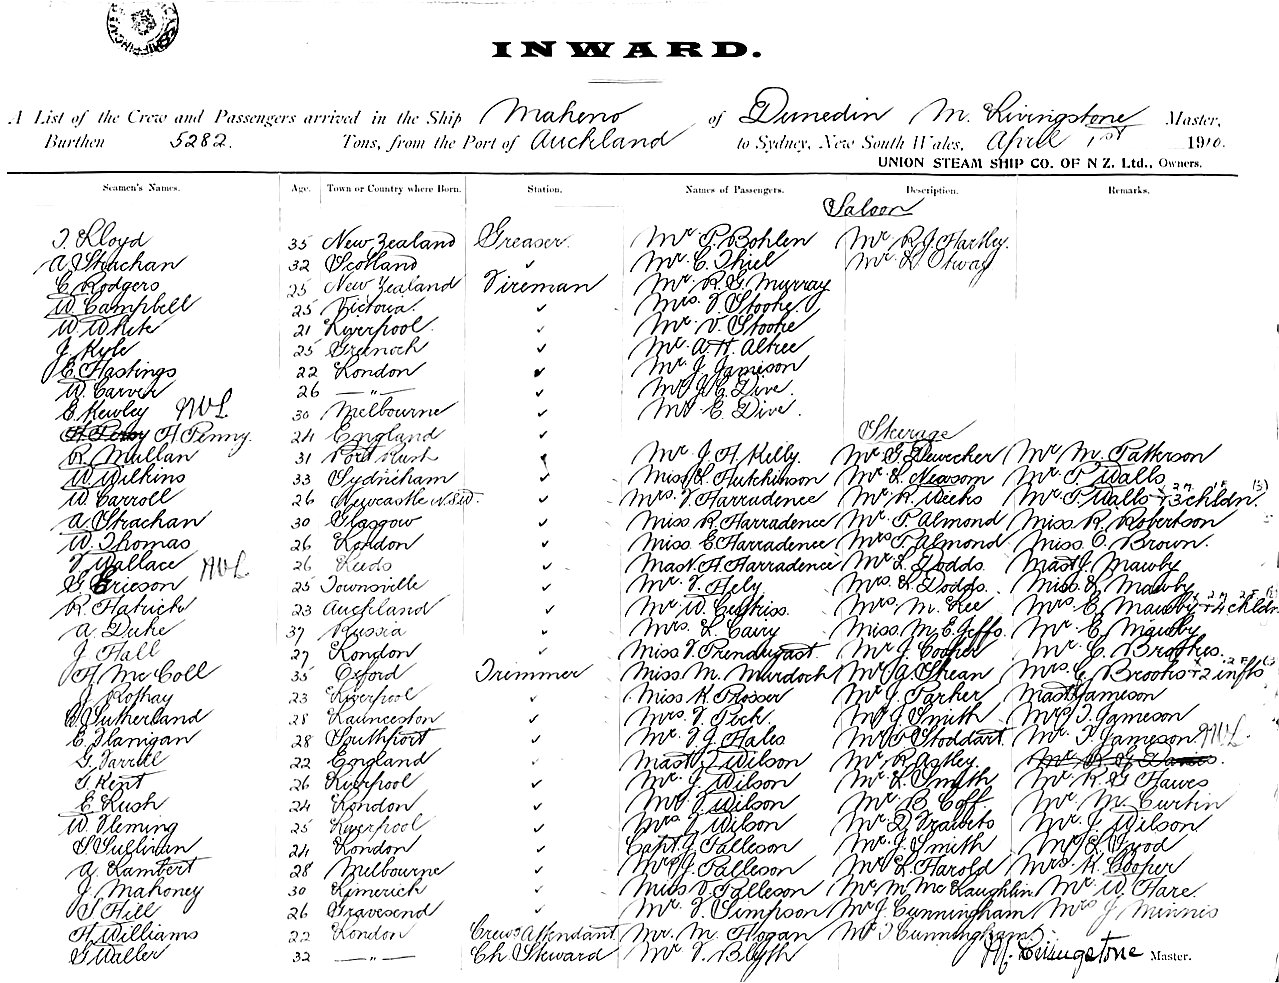 INWARD.
A List of the Crew and Passengers arrived in the Ship Maheno of Dunedin M. Livingstone Master,
Burthen 5282. Tons, from the Port of Auckland to Sydney, New South Wales, April 1st 1910.
UNION STEAM SHIP CO. OF N Z. Ltd., Owners.
Seamen's Names. Age. Town or Country where Born. Station. Names of Passengers. Description. Remarks.
Saloon
Lloyd 35 New Zealand Greaser. Mr P. Bohlen Mr R. J. Hartley.
A Strachan 32 Scotland ✓ Mr C. Thiel Mr L Otway
C Rodgers 25 New Zealand Fireman Mr. R. G. Murray
W Campbell 25 Victoria. ✓ Mrs. V Stooke.
W White 21 Liverpool. ✓ Mr. V. Stooke
J Kyle 25 Greenock ✓ Mr. A. H. Altree
E. Hastings 22 London ✓ Mr. J. Jameson
W. Carver 26 —"— ✓ Mr J. C. Dive.
E Kewley 30 Melbourne ✓ Mr E. Dive.
H Penny. 24 England ✓ Steerage
R Mullan 31 Mr J. H. Kelly. Mr G Mr M. Patterson
W Wilkins 33 Sydenham ✓ Miss L. Hutchinson Mr L. Newsom Mr T. Walls
W Carroll 26 Newcastle N.S.W. ✓ Mrs. V Harradence Mr. R. Weeks Mr T. Walls + 3 chldn. (3)
A. Strachan 30 Glasgow ✓ Miss R. Harradence Mr. P. Almond Miss R. Robertson
W. Thomas 26 London ✓ Miss. E Harradence Mrs P. Almond. Miss. C. Brown.
V Wallace 26 Leeds ✓ Mast. H Harradence Mr. L. Dodds. Mast J. Mawby
G Ericson 25 Townsville ✓ Mr. V. Hely Mrs. L. Dodds. Miss. V. Mawby
R Patrick 23 Auckland ✓ Mr W. Mrs. M. Lee Mrs. E. Mawby + 4 chldn
A. Duke 37 Russia ✓ Mrs. L. Cairy Miss. M. E. Jeffs. Mr E. Mawby
J Hall 27 London ✓ Miss V. Prendergast Mr J Cooper Mr C. Brookes.
H Mc Coll 35 Oxford Trimmer Miss M. Murdoch Mr A. Shean Mrs. C Brooks + 2 infts
J Rothay 23 Liverpool ✓ Miss K. Prosser Mr J. Parker Mast Jameson
W Sutherland 28 Launceston ✓ Mrs. V. Peck Mr J. Smith Mrs J. Jameson
E Flanigan 28 Southport ✓ Mr. V. J. Hales Mr Stoddart. Mr. J. Jameson
G Farrell 22 England Mast. J Wilson Mr R. Astley.
T. Kent 26 Liverpool ✓ Mr. J. Wilson Mr. L. Smith Mr. R. G Hawes
E Rush 24 London ✓ Mr. V. Wilson Mr. B. Coff Mr. M. Curtin
W Fleming 25 Liverpool ✓ Mrs. J. Wilson Mr. D. Mr. J. Wilson
S Sullivan 24 London ✓ Capt. J. Palleson Mr. J. Smith Mr. L.
A. Lambert 28 Melbourne ✓ Mrs J. Palleson Mr. L. Harold Mrs. H. Cooper
J Mahoney 30 Limerick ✓ Miss V. Palleson Mr. M. Mc Laughlin Mr. W. Hare.
S Hill 26 Gravesend ✓ Mr. V. Simpson Mr J. Cunningham Mrs J Minnis
H Williams 22 London Crews Attendant Mr. M. Hogan Mr J Cunningham
G Waller 32 —"— Ch. Steward Mr V. Blyth M. Livingstone Master.